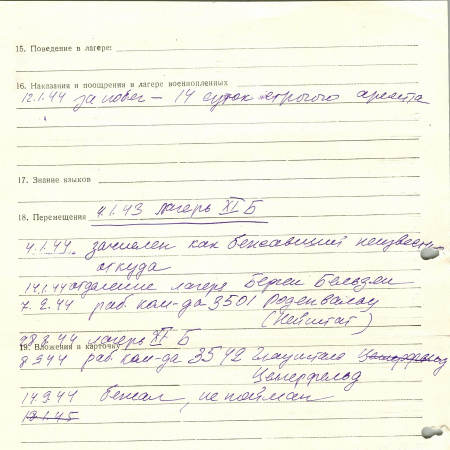 15. Поведение в лагере:
16. Наказания и поощрения в лагере военнопленных
12.1.44 за побег – 14 суток строгого ареста
17. Знание языков
18. Перемещения 4.1.43 лагерь XI Б
4.1.44 зачислен как бежавший неизвестно
откуда
14.1.44 отделение лагеря Берген Бельзен
7.2.44 раб. ком-да 3501
(Нейштат)
44 лагерь XI Б
19. Вложения в карточку
8 9 44 раб ком-да 3542
Цемерфельд
14.9.44 бежал, не пойман